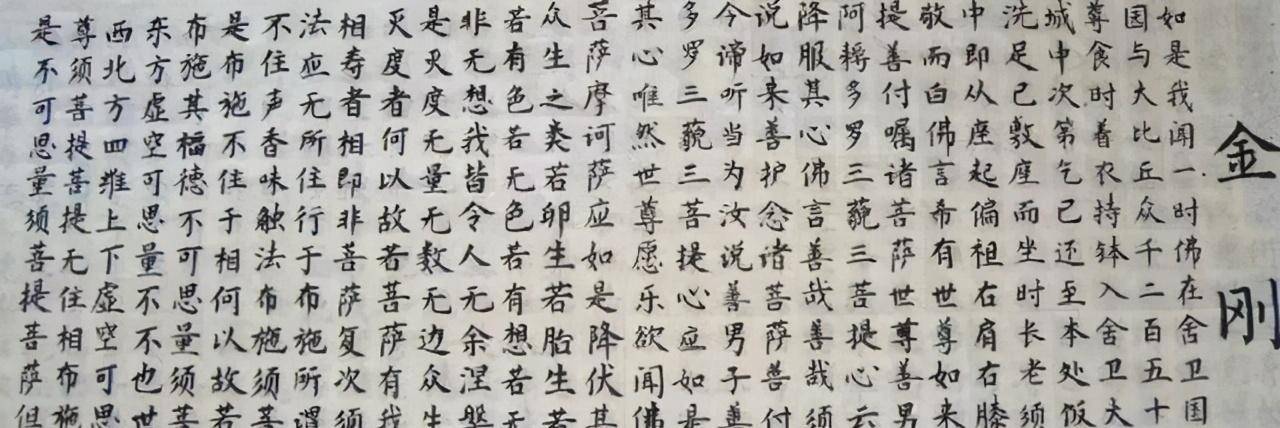 金刚
如是我闻一时佛在舍卫国
国与大比丘众千二百五十
尊食时着衣持钵入舍卫大
城中次第乞已还至本处饭
洗足已敷座而坐时长老须
中即从座起偏袒右肩右膝
敬而白佛言希有世尊如来
提善付嘱诸菩萨世尊善男
阿耨多罗三藐三菩提心云
降服其心佛言善哉善哉须
说如来善护念诸菩萨善付
今谛听当为汝说善男子善
多罗三藐三菩提心应如是
其心唯然世尊愿乐欲闻佛
菩萨摩诃萨应如是降伏其
众生之类若卵生若胎生若
若有色若无色若有想若无
非无想我皆令人无余涅槃
是灭度无量无数无边众生
灭度者何以故若菩萨有我
相寿者相即非菩萨复次须
法应无所住行于布施所谓
不住声香味触法布施须菩
是布施不住于相何以故若
布施其福德不可思量须菩
东方虚空可思量不不也世
西北方四维上下虚空可思
尊须菩提菩提无住相布施
是不可思量须菩提菩萨但